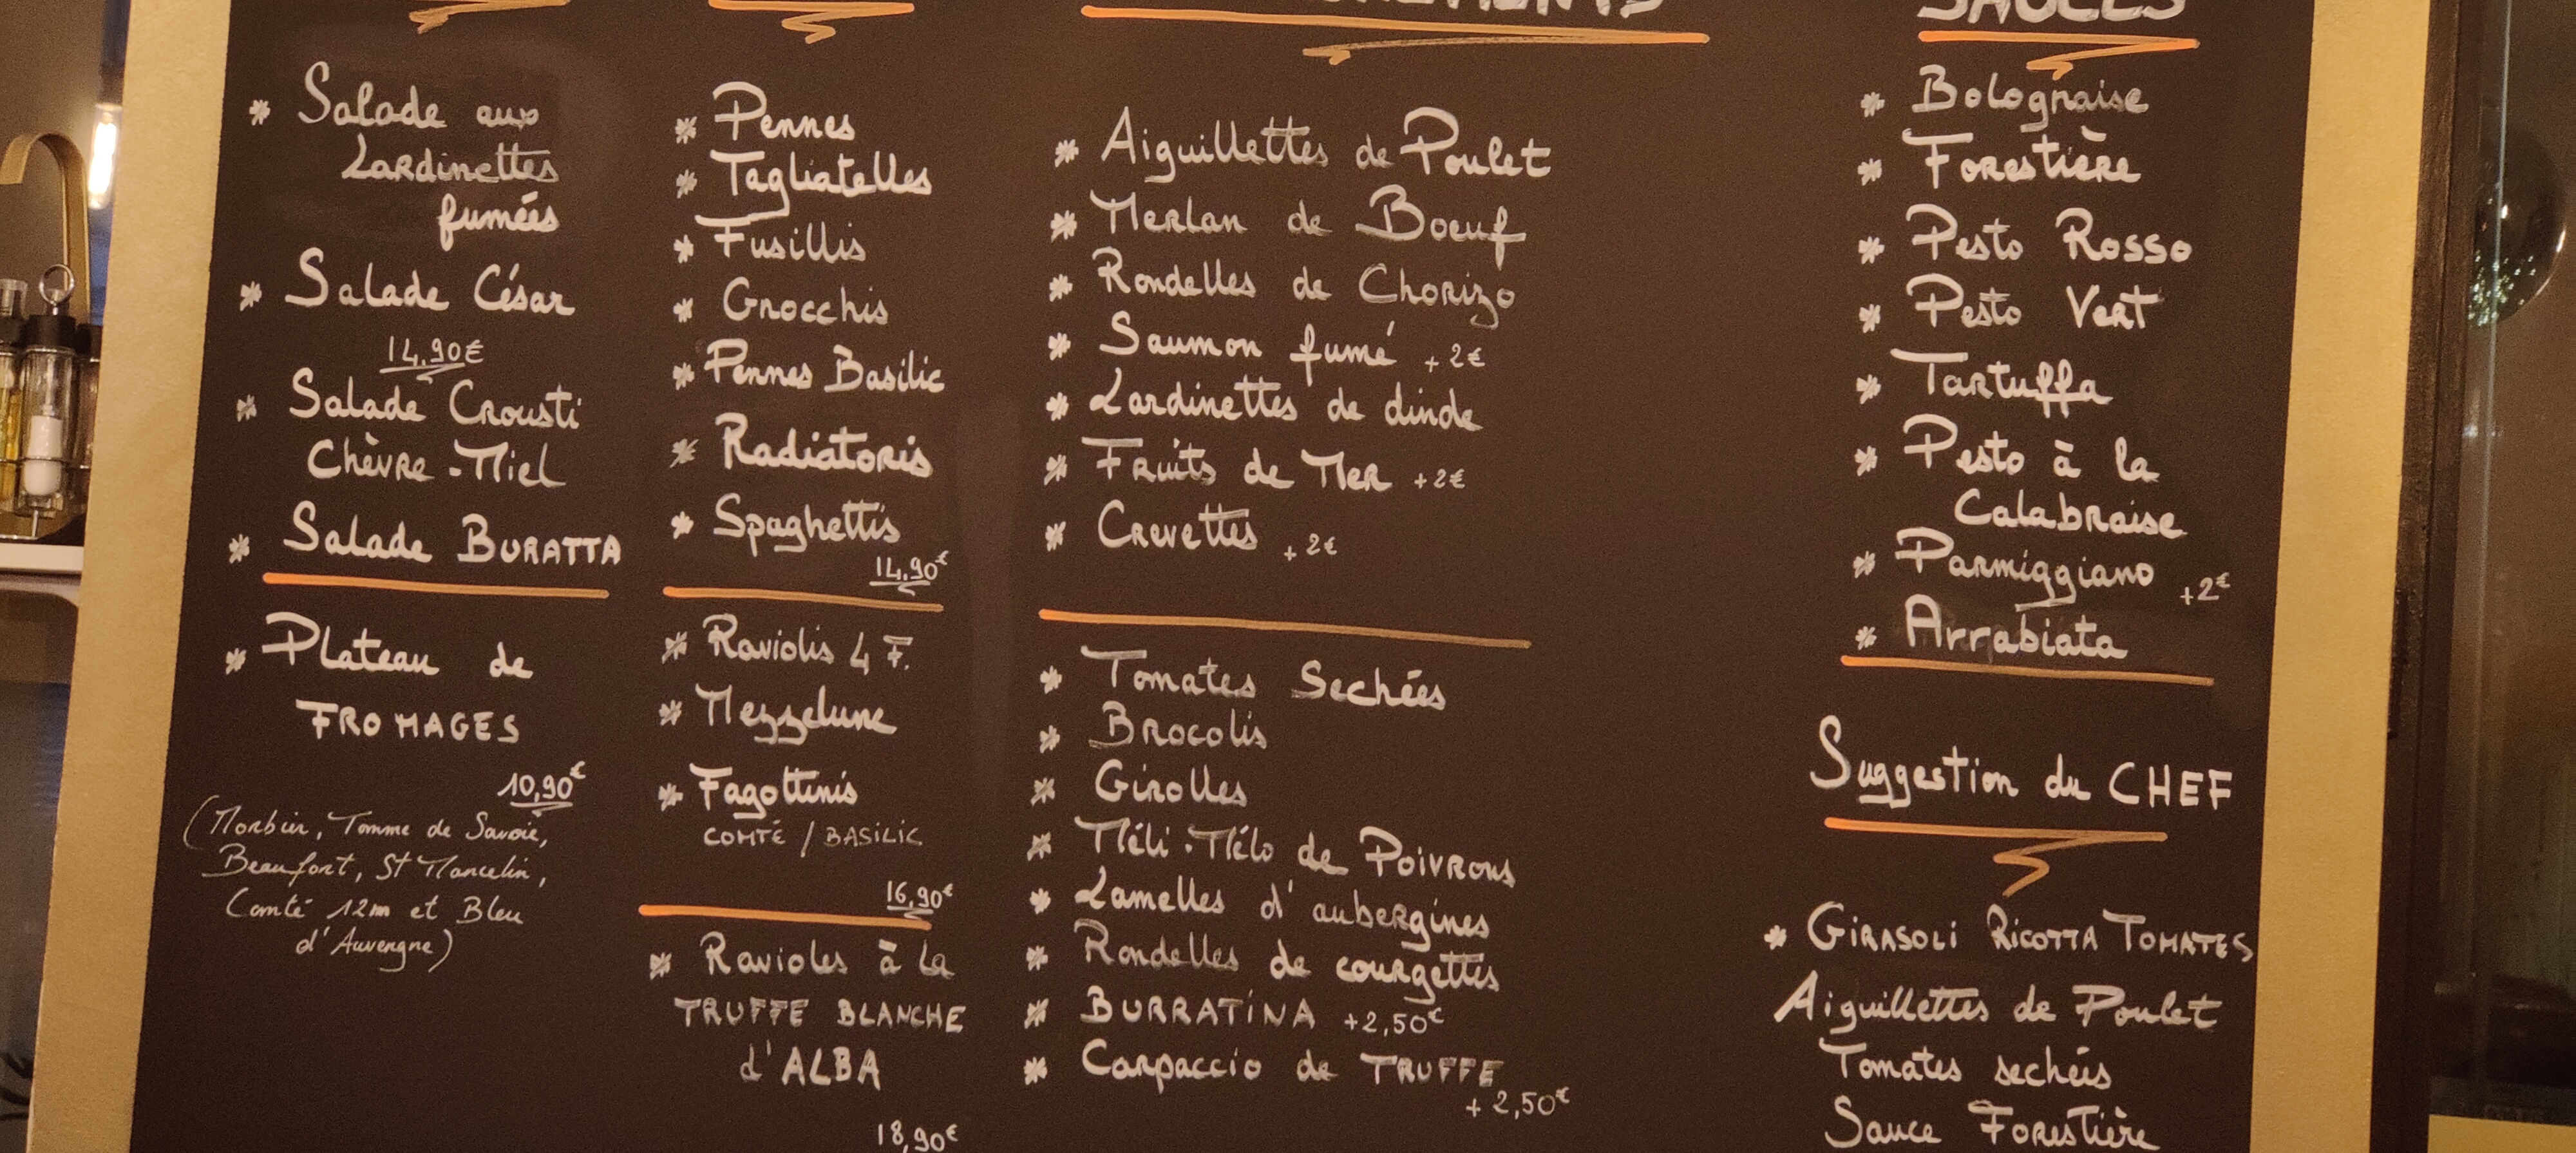 SAUCES
* Salade aux
Lardinettes
fumées
* Salade César
14,90€
* Salade Crousti
Chèvre-Miel
* Salade BURATTA
* Plateau de
FROMAGES
10,90€
(Morbier, Tomme de Savoie,
Beaufort, St Marcelin,
Comté 12m et Bleu
d'Auvergne)
* Pennes
* Tagliatelles
* Fusillis
* Gnocchis
* Pennes Basilic
* Radiatoris
* Spaghettis
14,90€
* Raviolis 4 F.
* Mezzelune
* Fagottinis
COMTÉ / BASILIC
16,90€
* Ravioles à la
TRUFFE BLANCHE
d'ALBA
18,90€
* Aiguillettes de Poulet
* Merlan de Boeuf
* Rondelles de Chorizo
* Saumon fumé +2€
* Lardinettes de dinde
* Fruits de Mer +2€
* Crevettes +2€
* Tomates Sechées
* Brocolis
* Girolles
* Méli-Mélo de Poivrons
* Lamelles d'aubergines
* Rondelles de courgettes
* BURRATINA +2,50€
* Carpaccio de TRUFFE
+2,50€
* Bolognaise
* Forestière
* Pesto Rosso
* Pesto Vert
* Tartuffa
* Pesto à la
Calabraise
* Parmiggiano +2€
* Arrabiata
Suggestion du CHEF
* GIRASOLI RICOTTA TOMATES
Aiguillettes de Poulet
Tomates sechées
Sauce Forestière